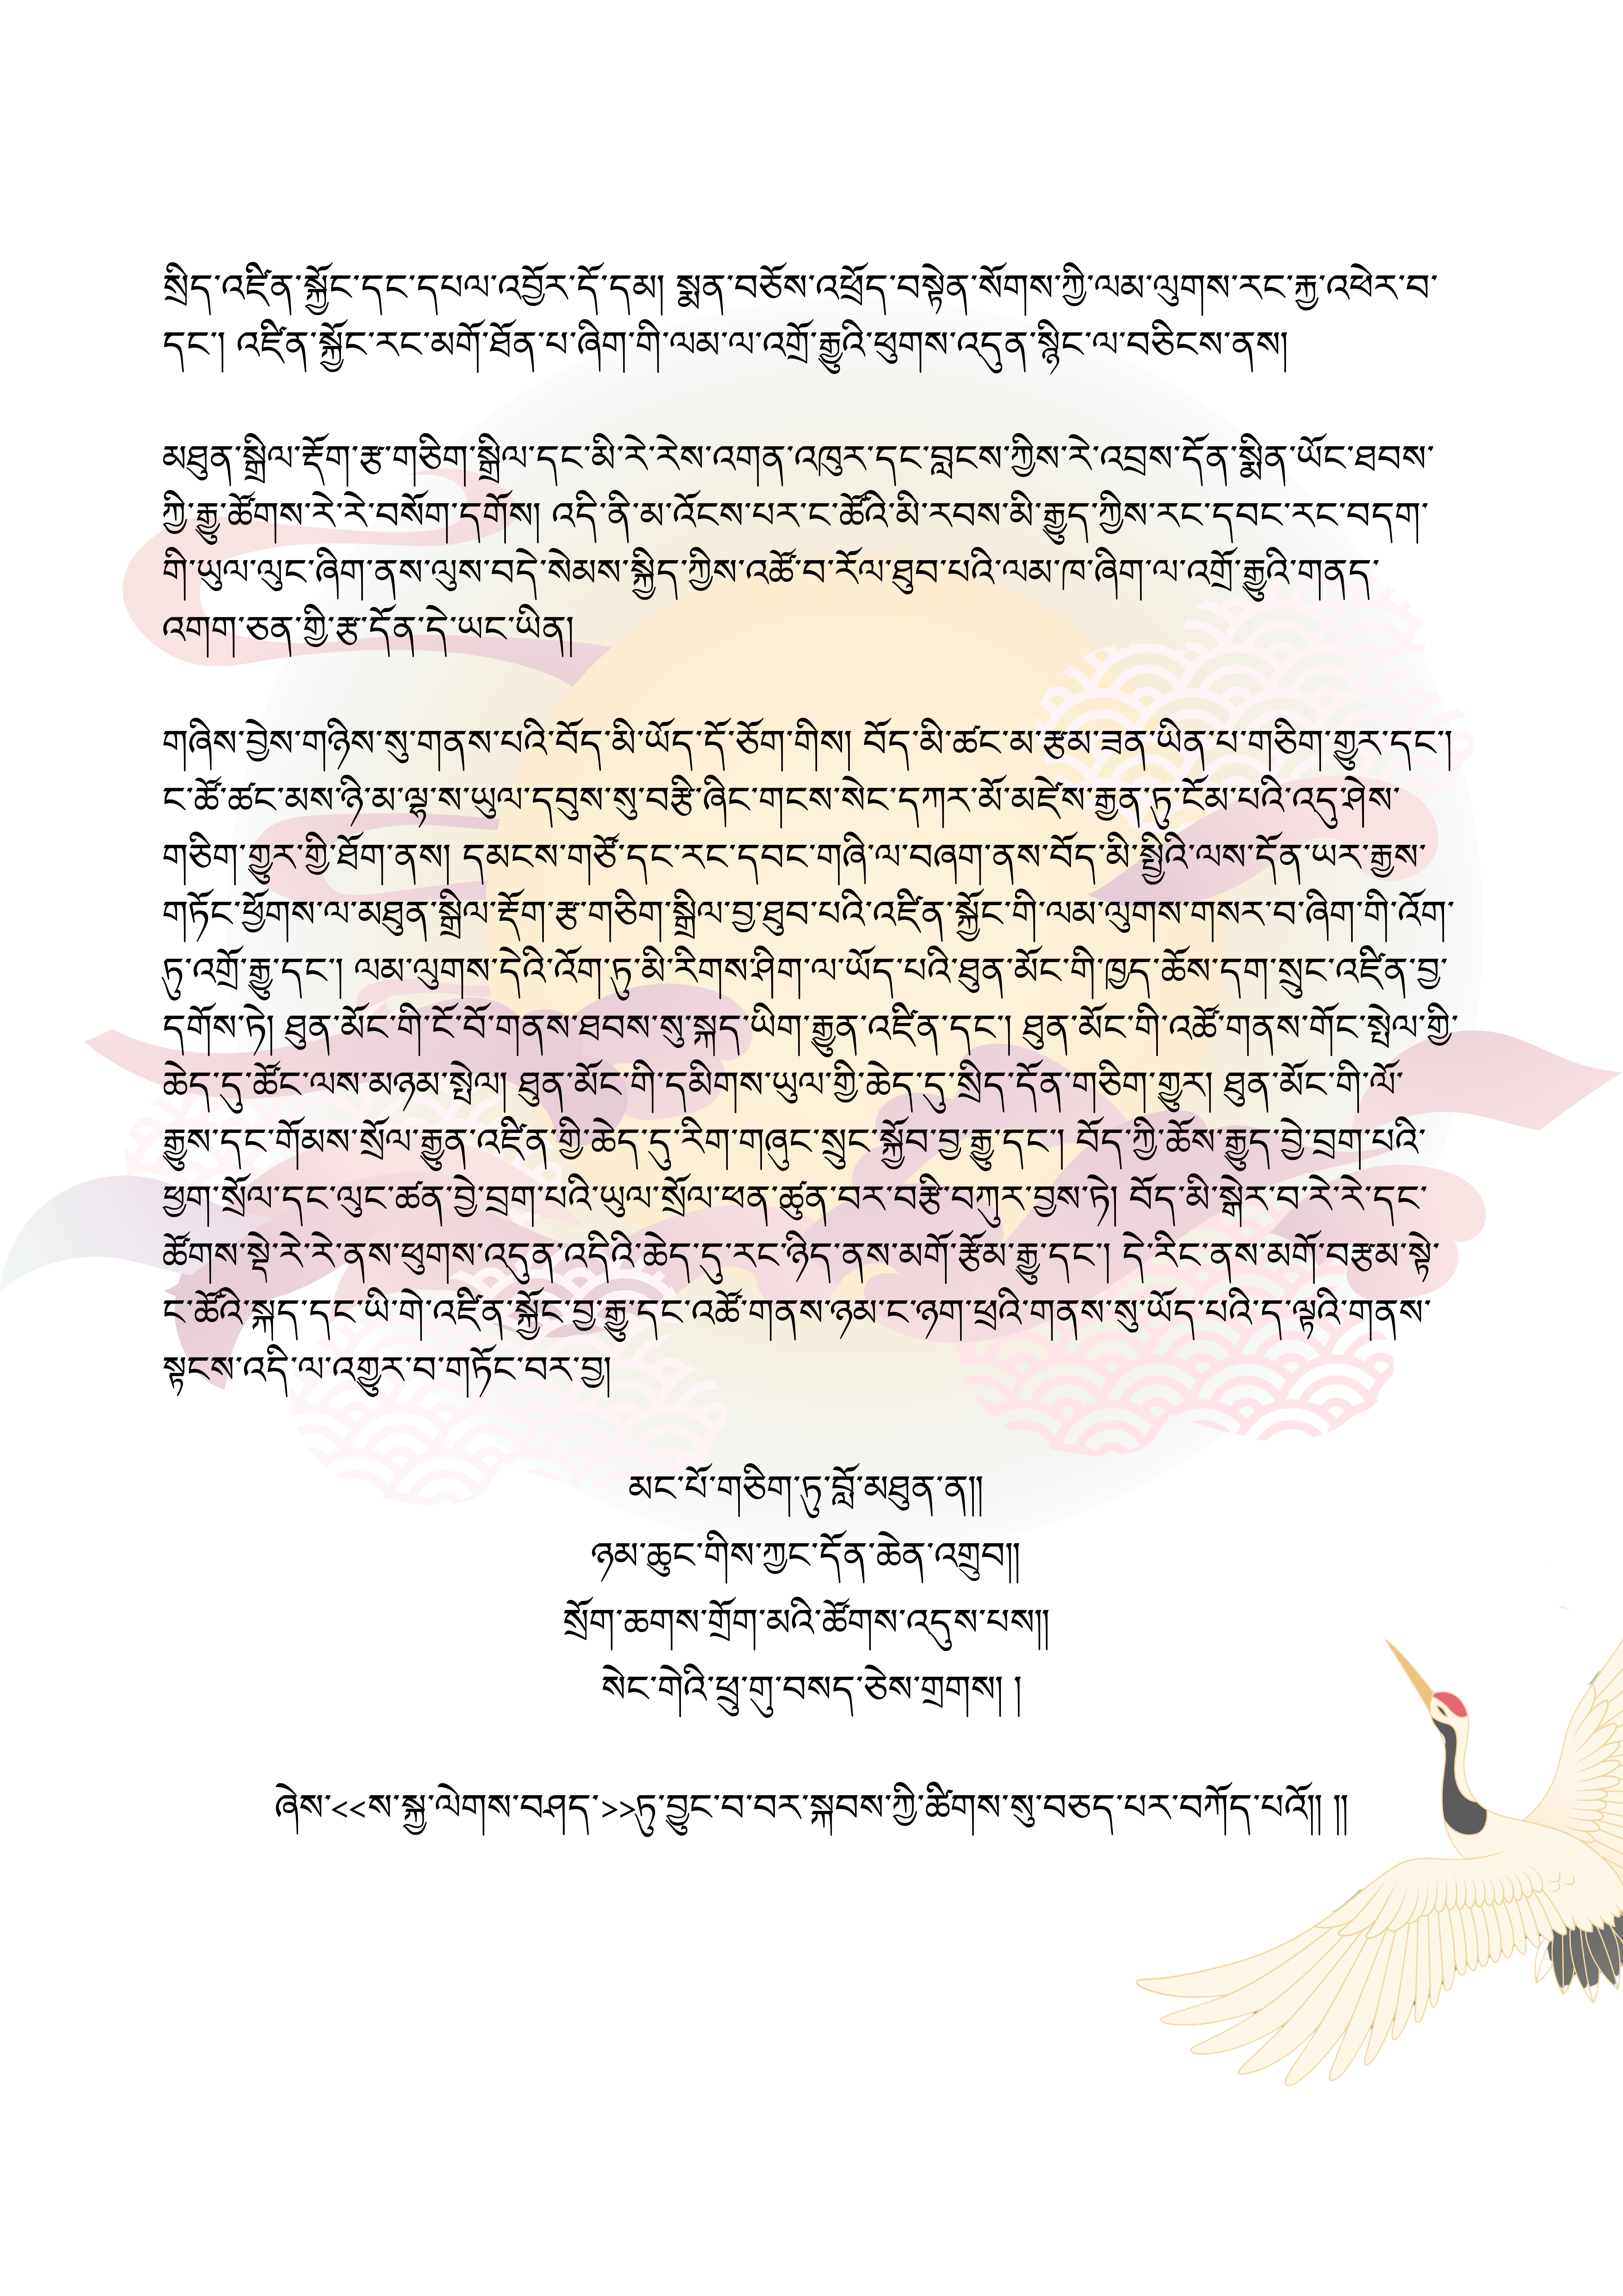 སྲིད་འཛིན་སྐྱོང་དང་དཔལ་འབྱོར་དོ་དམ། སྨན་བཅོས་འཕྲོད་བསྟེན་སོགས་ཀྱི་ལམ་ལུགས་རང་རྐྱ་འཕེར་བ་
དང་། འཛིན་སྐྱོང་རང་མགོ་ཐོན་པ་ཞིག་གི་ལམ་ལ་འགྲོ་རྒྱུའི་ཕུགས་འདུན་སྙིང་ལ་བཅིངས་ནས།
མཐུན་སྒྲིལ་རྡོག་རྩ་གཅིག་སྒྲིལ་དང་མི་རེ་རེས་འགན་འཁུར་དང་བླངས་ཀྱིས་རེ་འབྲས་དོན་སྨིན་ཡོང་ཐབས་
ཀྱི་རྒྱུ་ཚོགས་རེ་རེ་བསོག་དགོས། འདི་ནི་མ་འོངས་པར་ང་ཚོའི་མི་རབས་མི་རྒྱུད་ཀྱིས་རང་དབང་རང་བདག་
གི་ཡུལ་ལུང་ཞིག་ནས་ལུས་བདེ་སེམས་སྐྱིད་ཀྱིས་འཚོ་བ་རོལ་ཐུབ་པའི་ལམ་ཁ་ཞིག་ལ་འགྲོ་རྒྱུའི་གནད་
འགག་ཅན་གྱི་རྩ་དོན་དེ་ཡང་ཡིན།
གཞིས་བྱེས་གཉིས་སུ་གནས་པའི་བོད་མི་ཡོད་དོ་ཅོག་གིས། བོད་མི་ཚང་མ་རྩམ་ཟན་ཡིན་པ་གཅིག་གྱུར་དང་།
ང་ཚོ་ཚང་མས་ཉི་མ་ལྷ་ས་ཡུལ་དབུས་སུ་བརྩི་ཞིང་གངས་སེང་དཀར་མོ་མཛེས་རྒྱན་ཏུ་ངོམ་པའི་འདུ་ཤེས་
གཅིག་གྱུར་གྱི་ཐོག་ནས། དམངས་གཙོ་དང་རང་དབང་གཞི་ལ་བཞག་ནས་བོད་མི་སྤྱིའི་ལས་དོན་ཡར་རྒྱས་
གཏོང་ཕྱོགས་ལ་མཐུན་སྒྲིལ་རྡོག་རྩ་གཅིག་སྒྲིལ་བྱ་ཐུབ་པའི་འཛིན་སྐྱོང་གི་ལམ་ལུགས་གསར་བ་ཞིག་གི་འོག་
ཏུ་འགྲོ་རྒྱུ་དང་། ལམ་ལུགས་དེའི་འོག་ཏུ་མི་རིགས་ཤིག་ལ་ཡོད་པའི་ཐུན་མོང་གི་ཁྱད་ཆོས་དག་སྲུང་འཛིན་བྱ་
དགོས་ཏེ། ཐུན་མོང་གི་ངོ་བོ་གནས་ཐབས་སུ་སྐད་ཡིག་རྒྱུན་འཛིན་དང་། ཐུན་མོང་གི་འཚོ་གནས་གོང་སྤེལ་གྱི་
ཆེད་དུ་ཚོང་ལས་མཉམ་སྤེལ། ཐུན་མོང་གི་དམིགས་ཡུལ་གྱི་ཆེད་དུ་སྲིད་དོན་གཅིག་གྱུར། ཐུན་མོང་གི་ལོ་
རྒྱུས་དང་གོམས་སྲོལ་རྒྱུན་འཛིན་གྱི་ཆེད་དུ་རིག་གཞུང་སྲུང་སྐྱོབ་བྱ་རྒྱུ་དང་། བོད་ཀྱི་ཆོས་རྒྱུད་བྱེ་བྲག་པའི་
ཕྱག་སྲོལ་དང་ལུང་ཚན་བྱེ་བྲག་པའི་ཡུལ་སྲོལ་ཕན་ཚུན་བར་བརྩི་བཀུར་བྱས་ཏེ། བོད་མི་སྒེར་བ་རེ་རེ་དང་
ཚོགས་སྡེ་རེ་རེ་ནས་ཕུགས་འདུན་འདིའི་ཆེད་དུ་རང་ཉིད་ནས་མགོ་རྩོམ་རྒྱུ་དང་། དེ་རིང་ནས་མགོ་བརྩམ་སྟེ་
ང་ཚོའི་སྐད་དང་ཡི་གེ་འཛིན་སྐྱོང་བྱ་རྒྱུ་དང་འཚོ་གནས་ཉམ་ང་ཉག་ཕྲའི་གནས་སུ་ཡོད་པའི་ད་ལྟའི་གནས་
སྟངས་འདི་ལ་འགྱུར་བ་གཏོང་བར་བྱ།
མང་པོ་གཅིག་ཏུ་བློ་མཐུན་ན།།
ཉམ་ཆུང་གིས་ཀྱང་དོན་ཆེན་འགྲུབ།།
སྲོག་ཆགས་གྲོག་མའི་ཚོགས་འདུས་པས།།
སེང་གེའི་ཕྲུ་གུ་བསད་ཅེས་གྲགས། །
ཞེས་<<ས་སྐྱ་ལེགས་བཤད་>>ཏུ་བྱུང་བ་བར་སྐབས་ཀྱི་ཚིགས་སུ་བཅད་པར་བཀོད་པའོ།། །།